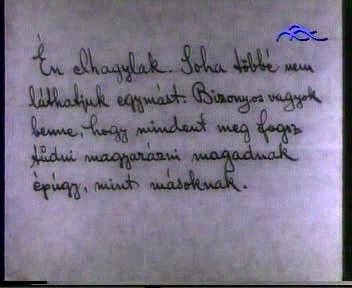 Én elhagylak. Soha többé nem
láthatjuk egymást. Bizonyos vagyok
benne, hogy mindent meg fogsz
tudni magyarázni magadnak
épúgy, mint másoknak.